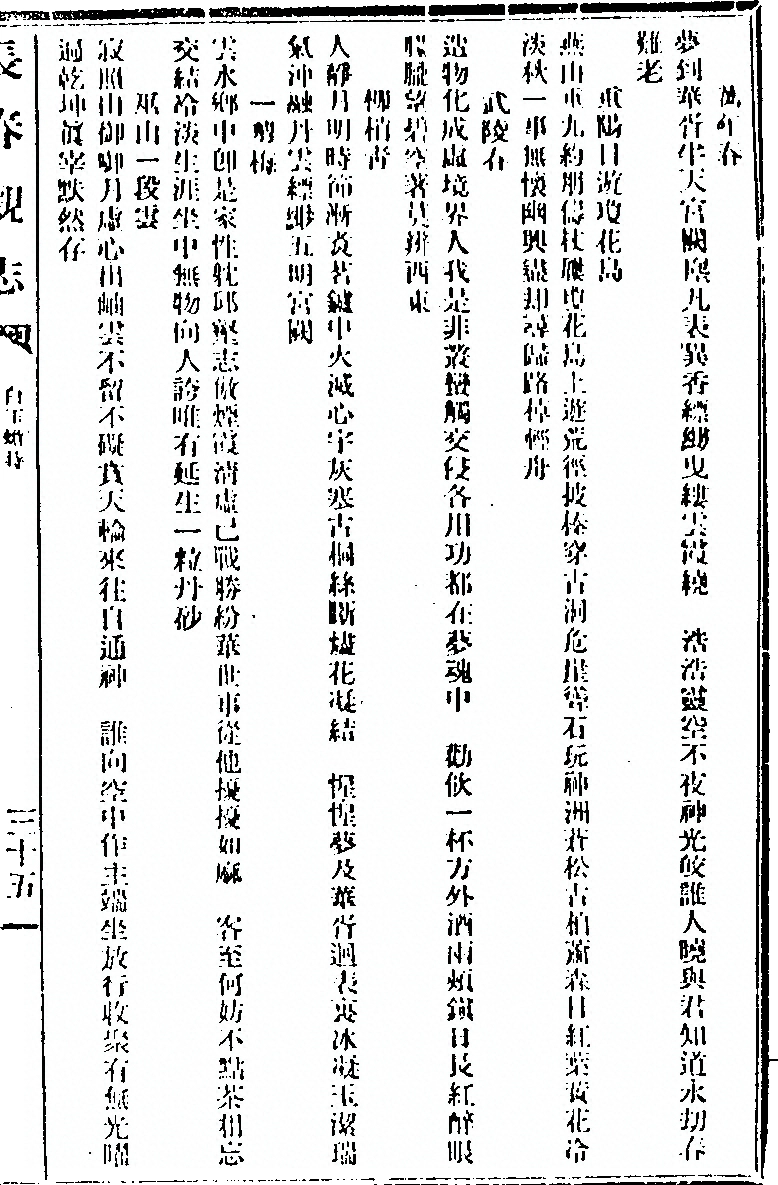 萬年春
夢到華胥坐天宮闕塵凡表異香縹緲曳縷雲霞繞　浩浩靈空不夜神光皎誰人曉與君知道永劫春
難老
重陽日遊瓊花島
燕山重九約朋儔杖履瓊花島上遊荒徑披榛穿古洞危崖磴石玩神洲蒼松古柏蕭森日紅葉黃花冷
淡秋一事無懷幽興盡却尋歸路棹輕舟
武陵春
造物化成虛境界人我是非叢蠻觸交侵各用功都在夢魂中　勸伙一杯方外酒雨頰鎭日長紅醉眼
矇朧望碧空著莫辨西東
柳梢青
人靜月明時節漸炎苦鍵中火滅心宇灰寒古桐絲斷燼花凝結　惺惺夢及華胥迴表裏冰凝玉潔瑞
氣沖融丹雲縹緲五明宮闕
一剪梅
雲水鄉中卽是家性躭邱壑志傲煙霞淸虛已戰勝紛華世事從他擾擾如麻　客至何妨不點茶相忘
交結冷淡生涯坐中無物向人誇唯有延生一粒丹砂
巫山一段雲
寂照山御啣月虛心出岫雲不留不礙賁天輪來往自通神　誰向空中作主端坐放行收聚有無光曜
過乾坤眞宰默然存
長春觀志 四
三十五